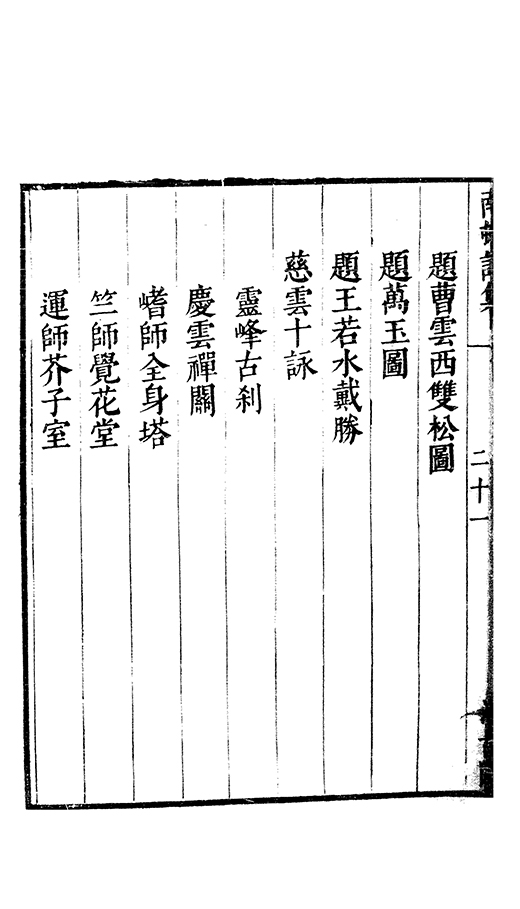 題曹雲西雙松圖
題萬玉圖
題王若水戴勝
慈雲十詠
靈峰古刹
慶雲禪關
嗜師全身塔
竺師覺花堂
運師芥子室
二十一